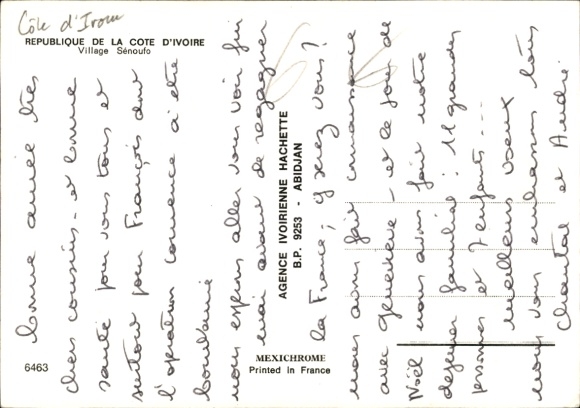 Côte d'Ivoire
REPUBLIQUE DE LA COTE D'IVOIRE
Village Sénoufo
bonne année très
chers cousins - et bonne
santé pour vous tous et
surtout pour François dont
l'opération commence à être
lointaine
nous espérons aller vous voir fin
mai avant de regagner
la France ; y serez vous ?
nous avons fait connaissance
avec geneviève - et le jour de
Noël nous avons fait notre
déjeuner familial : 11 grandes
personnes et 7 enfants ...
meilleurs voeux
nous vous embrassons tous
Chantal et André
AGENCE IVOIRIENNE HACHETTE
B.P. 9253 - ABIDJAN
6463
MEXICHROME
Printed in France